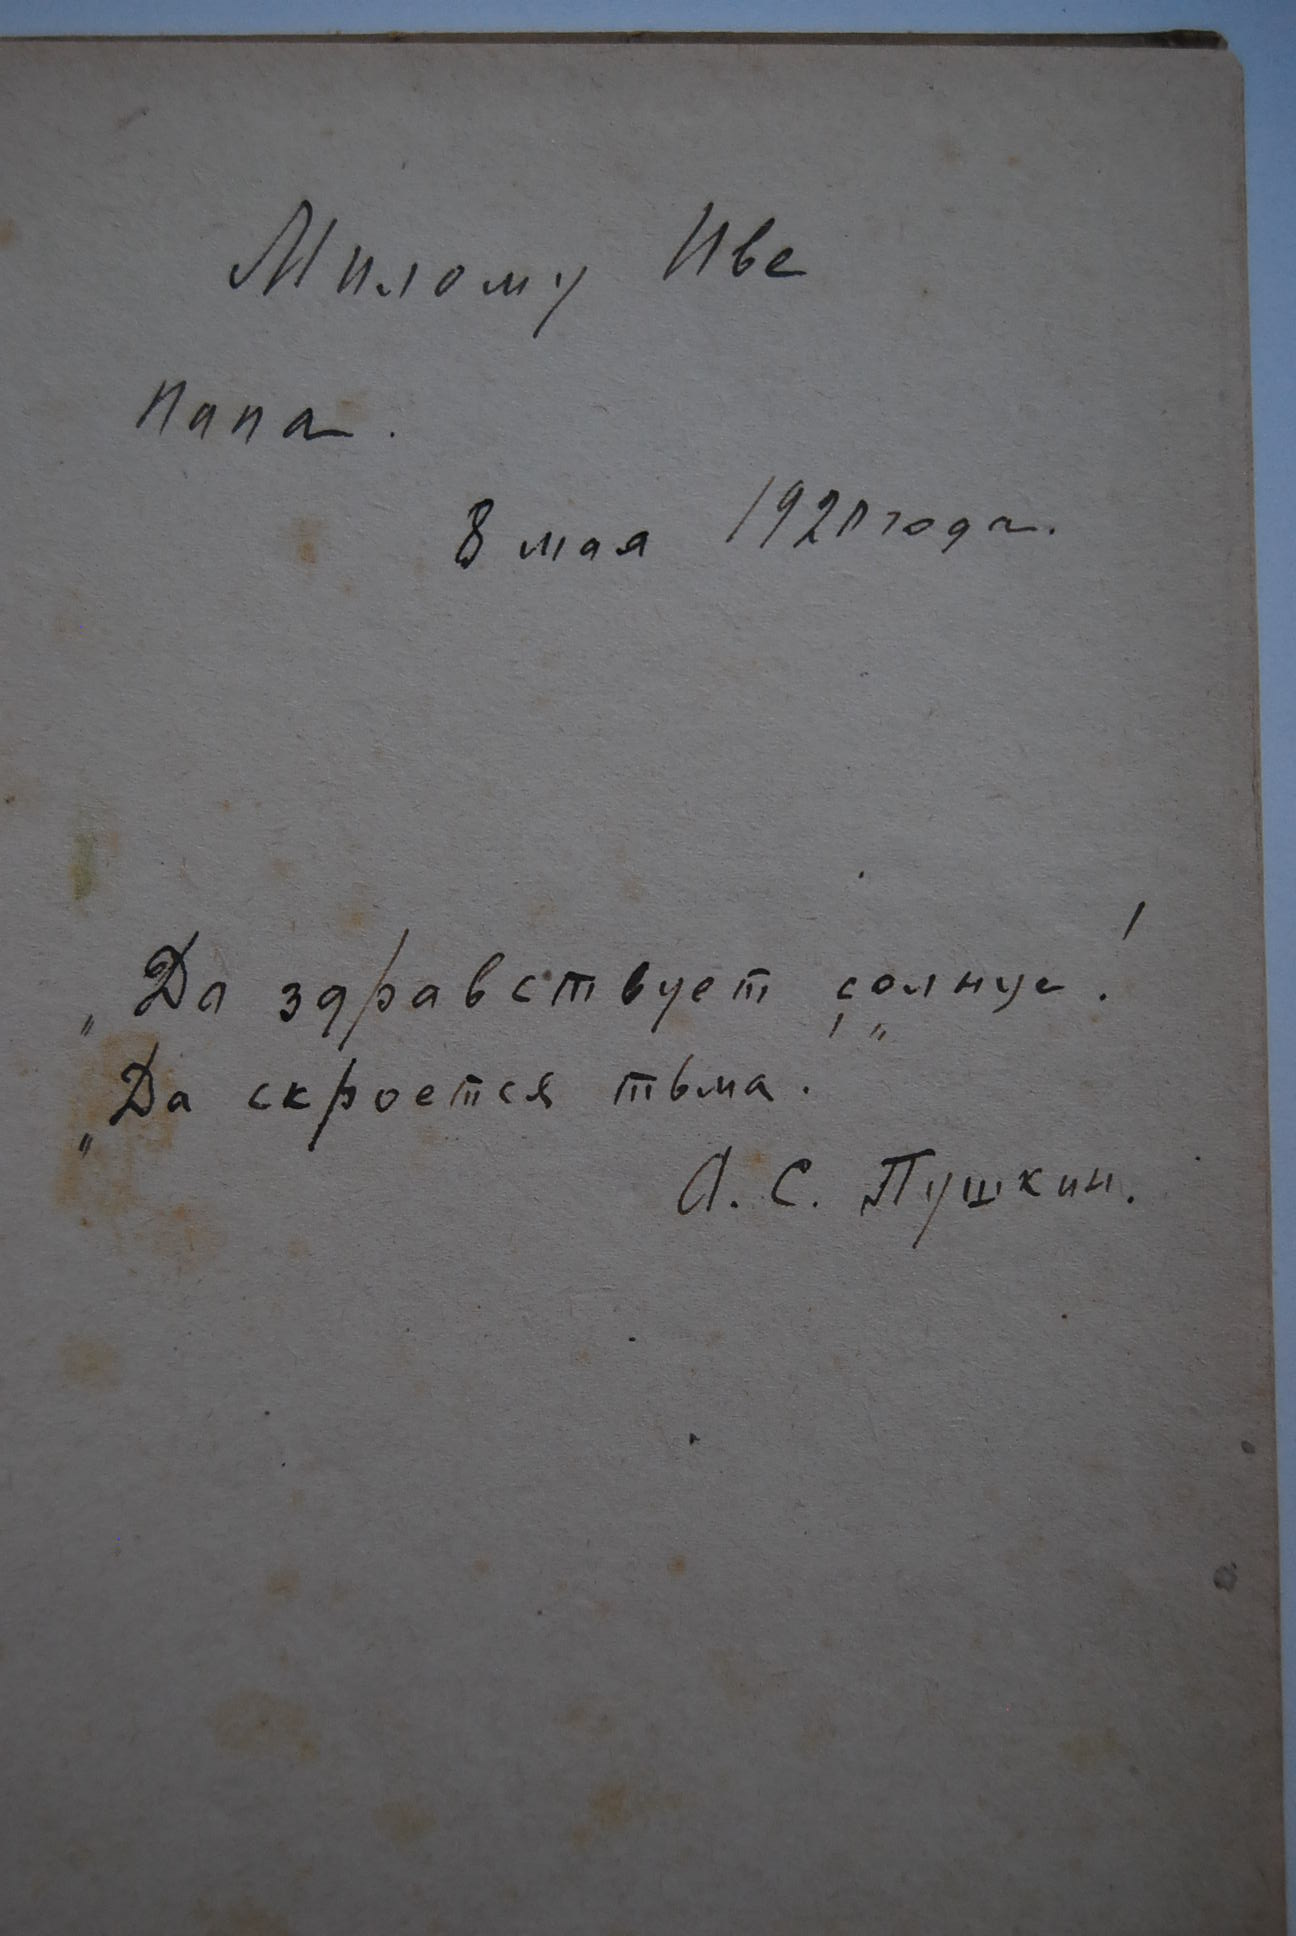 Милому Иве
папа.
8 мая 1921 года.
„Да здравствует солнце!
„Да скроется тьма.
А. С. Пушкин.